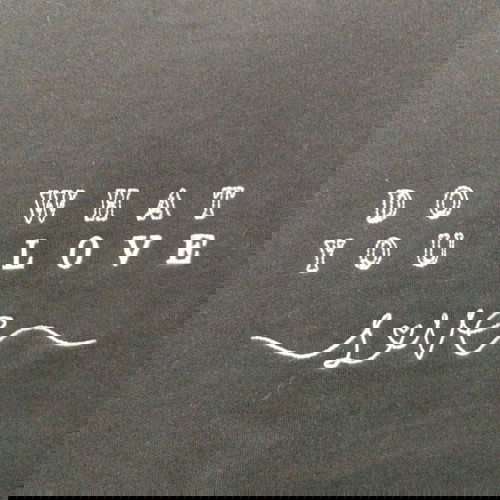 WHAT DO
LOVE YOU
LOVE